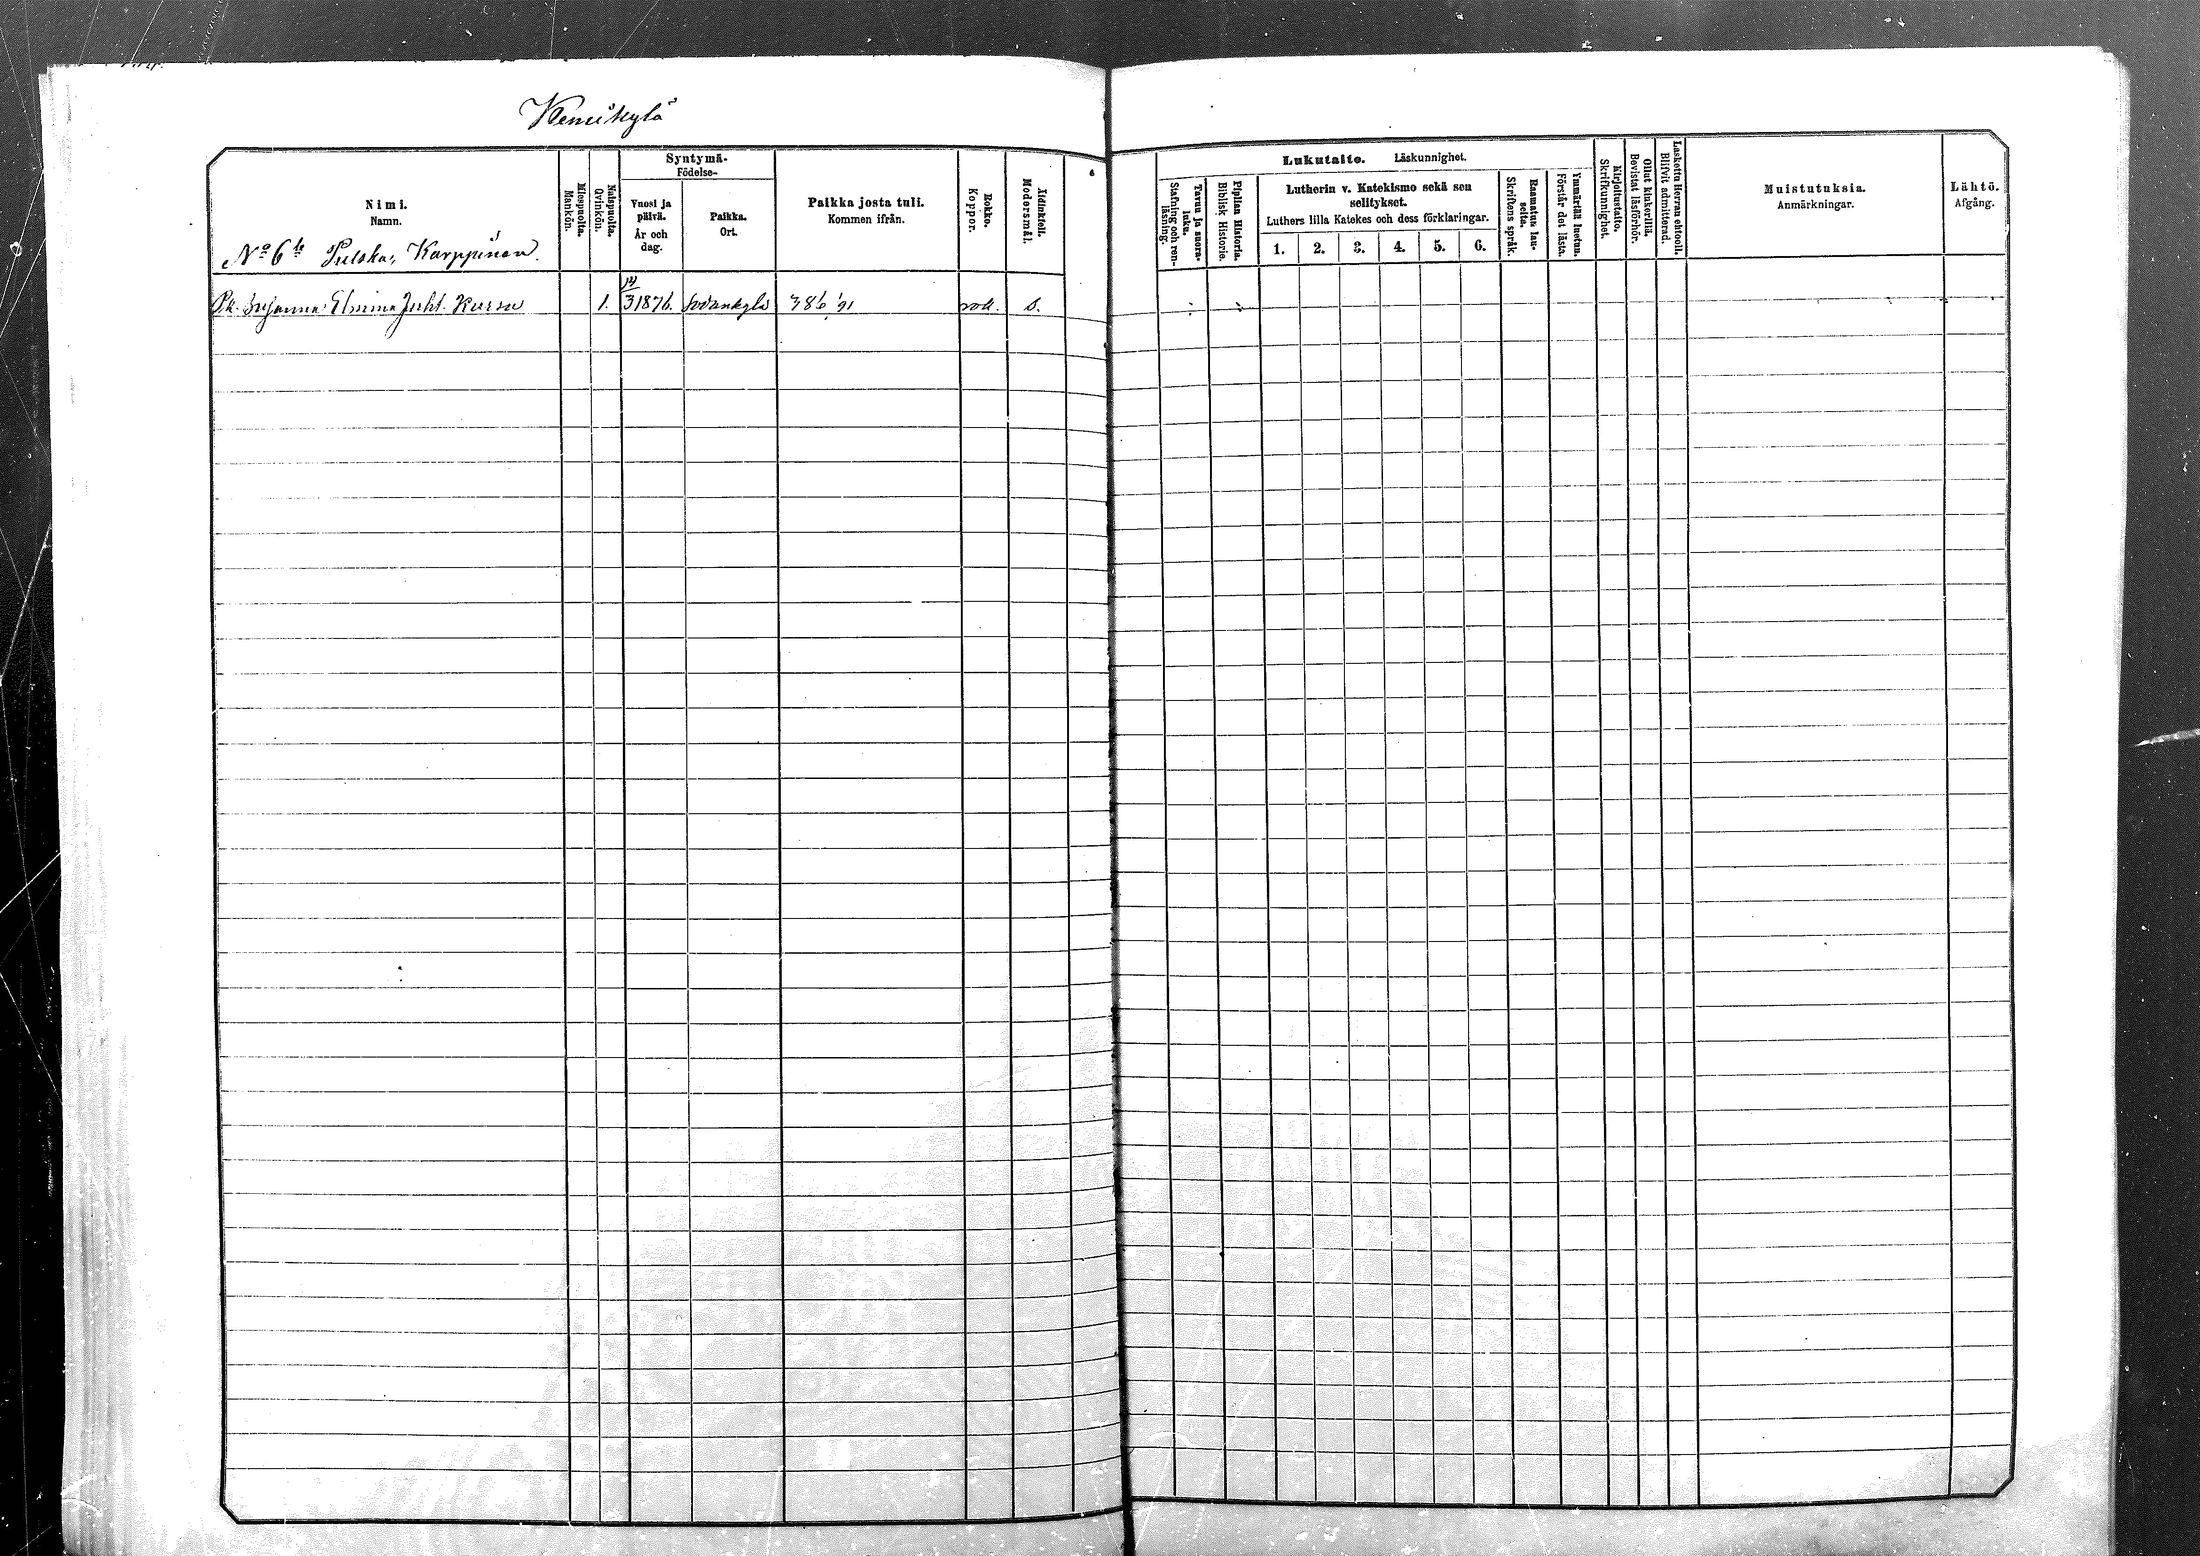 Kemikylä
Nimi.
Namn.
Miespuolta.
Mankön.
Naispuolta.
Qvinkön.
Syntymä-
Födelse-
Vuosi ja
päivä.
År och
dag.
Paikka.
Ort.
Paikka josta tuli.
Kommen ifrån.
Rokko.
Koppor.
Äidinkieli.
Modersmål.
No 6 Pulska, Karppinen.
Susanna Elmina Juht. Kursu 1. 3 1876. Sodankylä 386 91 rok. s.
Lukutaito. Läskunnighet.
Tavuu ja suora-
luku.
Stafning och ren-
läsning.
Piplian Historia.
Biblisk Historie.
Lutherin v. Katekismo sekä sen
selitykset.
Luthers lilla Katekes och dess förklaringar.
1. 2. 3. 4. 5. 6.
Raamatun lau-
seita.
Skriftens språk.
Ymmärtää luetun.
Förstår det lästa.
Kirjoitustaito.
Skrifkunnighet.
Ollut kinkerillä.
Bevistat läsförhör.
Laskettu Herran ehtooll.
Blifvit admitterad.
Muistutuksia.
Anmärkningar.
Lähtö.
Afgång.